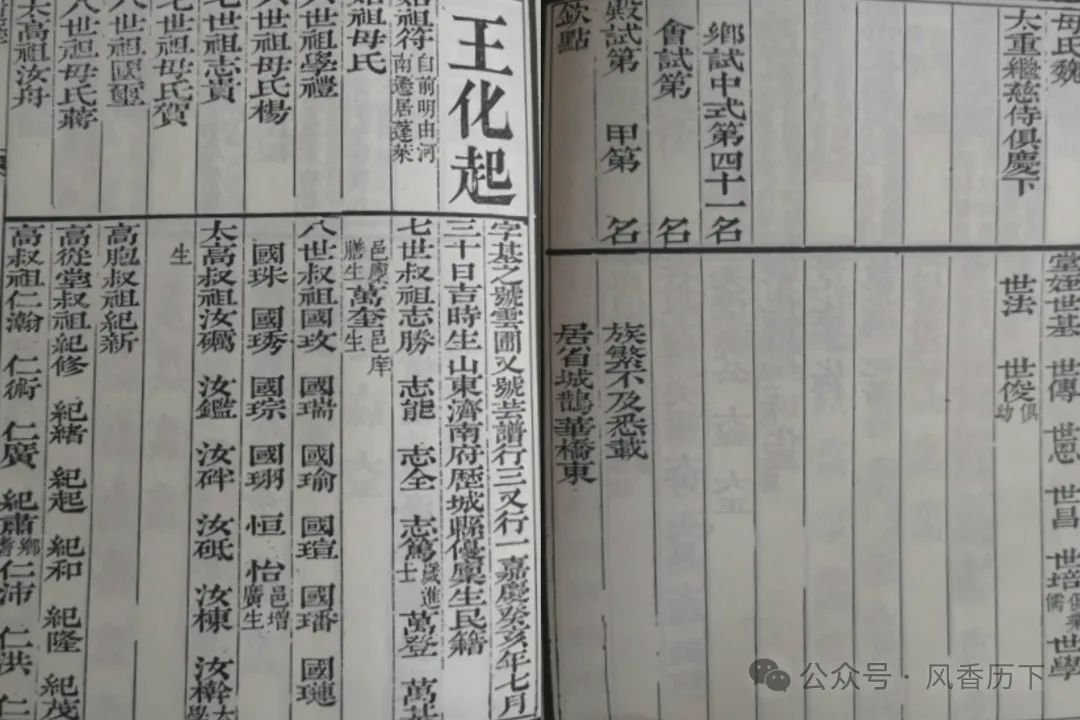 母氏魏
太重繼慈侍俱慶下
鄉試中式第四十一名
會試第 名
殿試第 甲第 名
欽點
堂姪世基 世傳 世恩 世昌 世培 俱業儒 世學
世法 世俊 俱幼
族繁不及悉載
居省城鵲華橋東
王化起
始祖符 自前明由河南遷居蓬萊
始祖母氏
世祖學禮
世祖母氏楊
七世祖志貴
七世祖母氏賀
八世祖國璽
八世祖母氏蔣
太高祖汝舟
字基之號雲圃又號芸譜行三又行一嘉慶癸亥年七月
三十日吉時生山東濟南府歷城縣優廩生民籍
七世叔祖志勝 志能 志全 志篤 歲進士 萬登 萬基
邑廩膳生 萬奎 邑庠生
八世叔祖國玫 國瑞 國瑜 國瑄 國璠 國璉
國珠 國琇 國琮 國珝 恒 怡 邑增廣生
太高叔祖汝礪 汝鑑 汝砰 汝砥 汝棟
生
高胞叔祖紀新
高從堂叔祖紀修 紀緒 紀起 紀和 紀隆 紀茂
高叔祖仁瀚 仁術 仁廣 紀肅 鄉耆 仁沛 仁洪 仁
公众号·风香历下